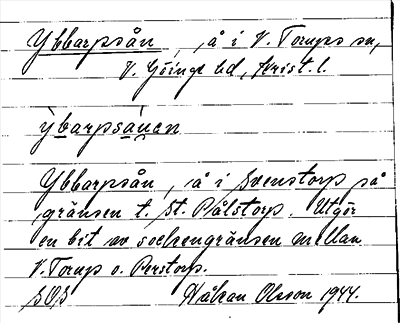 Ybbarpsån, å i V. Torups sn,
V. Göinge hd, Krist. l.
ỳbarpsánen
Ybbarpsån, å i Svenstorp på
gränsen t. St. Pålstorp. Utgör
en bit av sockengränsen mellan
V. Torup o. Perstorp.
SOS Håkan Olsson 1944.